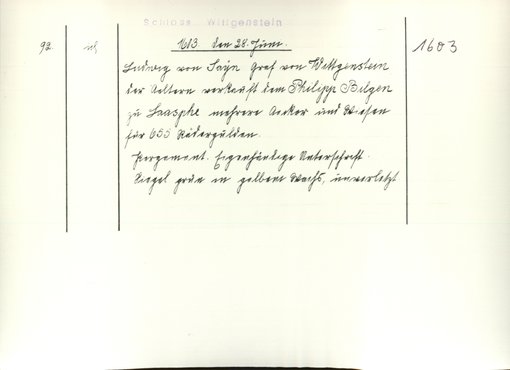 Schloss Wittgenstein
92.
1613. den 28. Juni.
1603
Ludwig von Sayn Graf von Wittgenstein
der Aeltern verkauft dem Philipp Bilgen
zu Laasphe mehrere Aecker und Wiesen
für 655 Rädergülden.
Pergament. Eigenhändige Unterschrift.
Siegel grün in gelbem Wachs, unverletzt